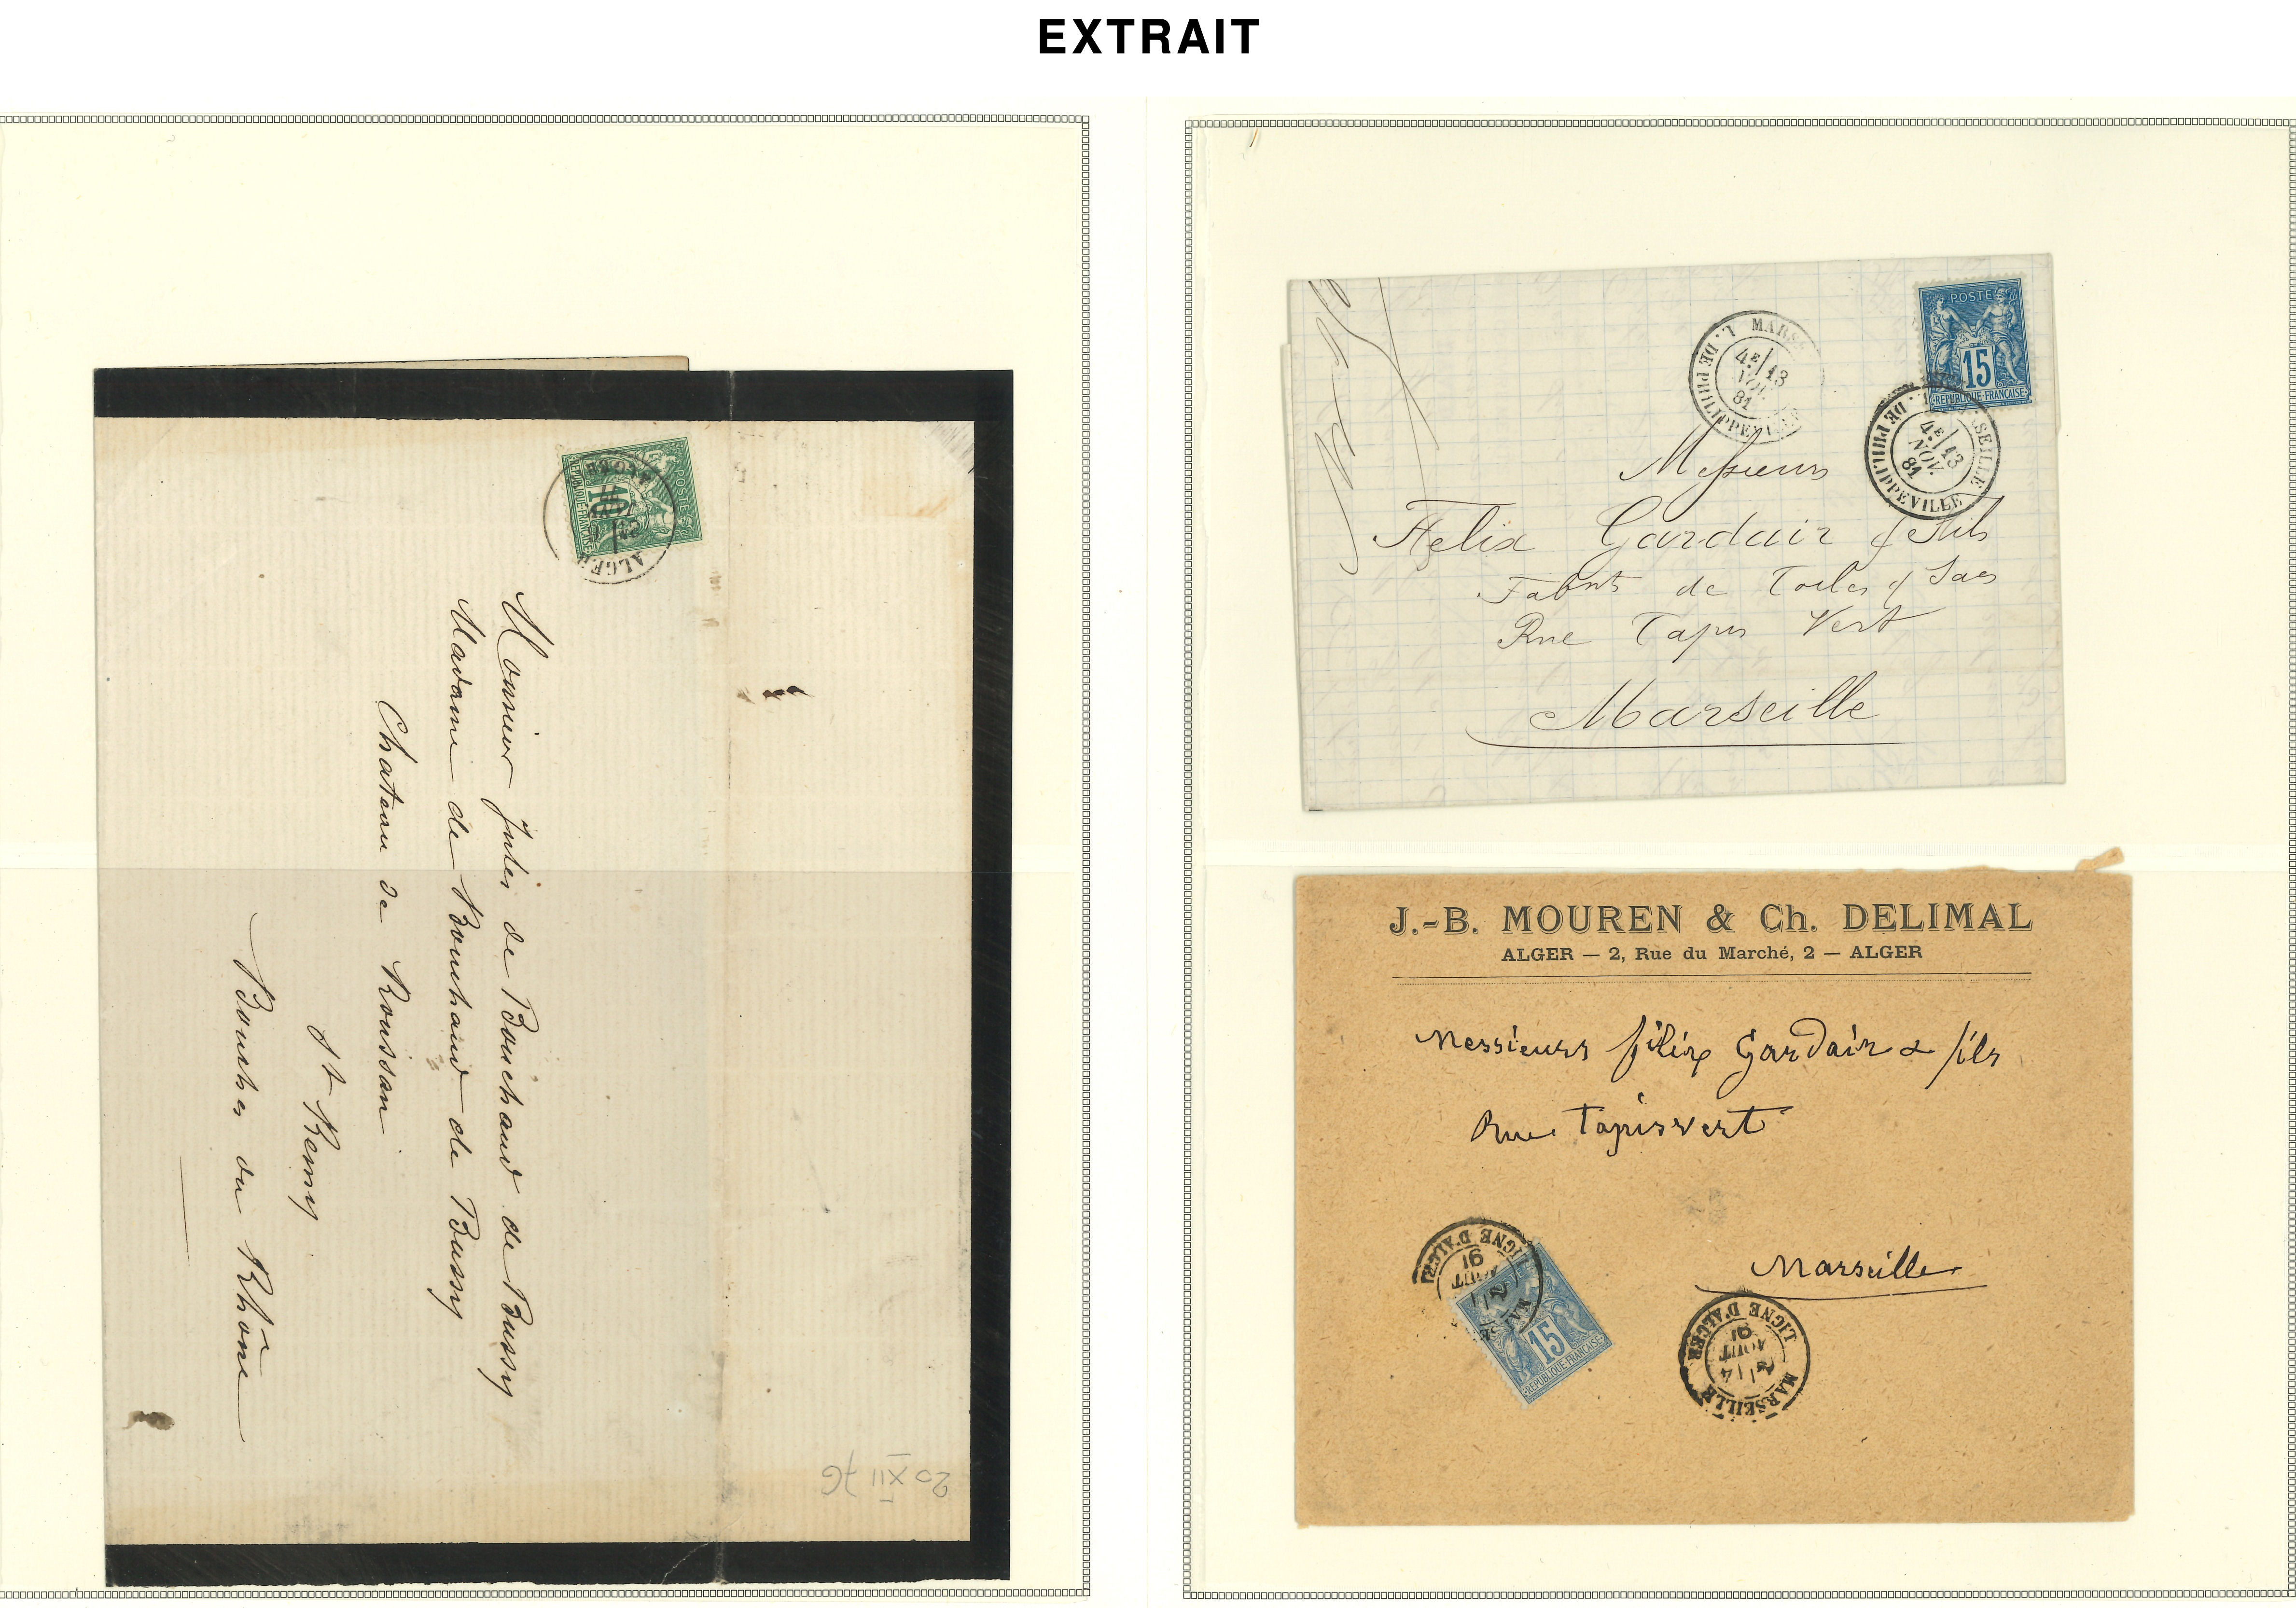 EXTRAIT
POSTE
10
REPUBLIQUE FRANCAISE
ALGER
Monsieur Jules de Bouchaud de Bussy
Madame de Bouchaud de Bussy
Chateau de Roussan
St Remy
Bouches du Rhône
20 XII 76
MARS
4E 13
81
L. DE PHILIPPEVILLE
POSTE
15
REPUBLIQUE FRANCAISE
SEILLE
4E 13
NOV.
81
L. DE PHILIPPEVILLE
Messieurs
Felix Gardair & fils
Fabnts de Toiles & Sacs
Rue Tapis Vert
Marseille
J.-B. MOUREN & Ch. DELIMAL
ALGER — 2, Rue du Marché, 2 — ALGER
Messieurs félix Gardair & fils
Rue Tapis vert
Marseille
LIGNE D'ALGER
AOUT
91
15
REPUBLIQUE FRANCAISE
MARSEILLE
2E 14
AOUT
91
LIGNE D'ALGER